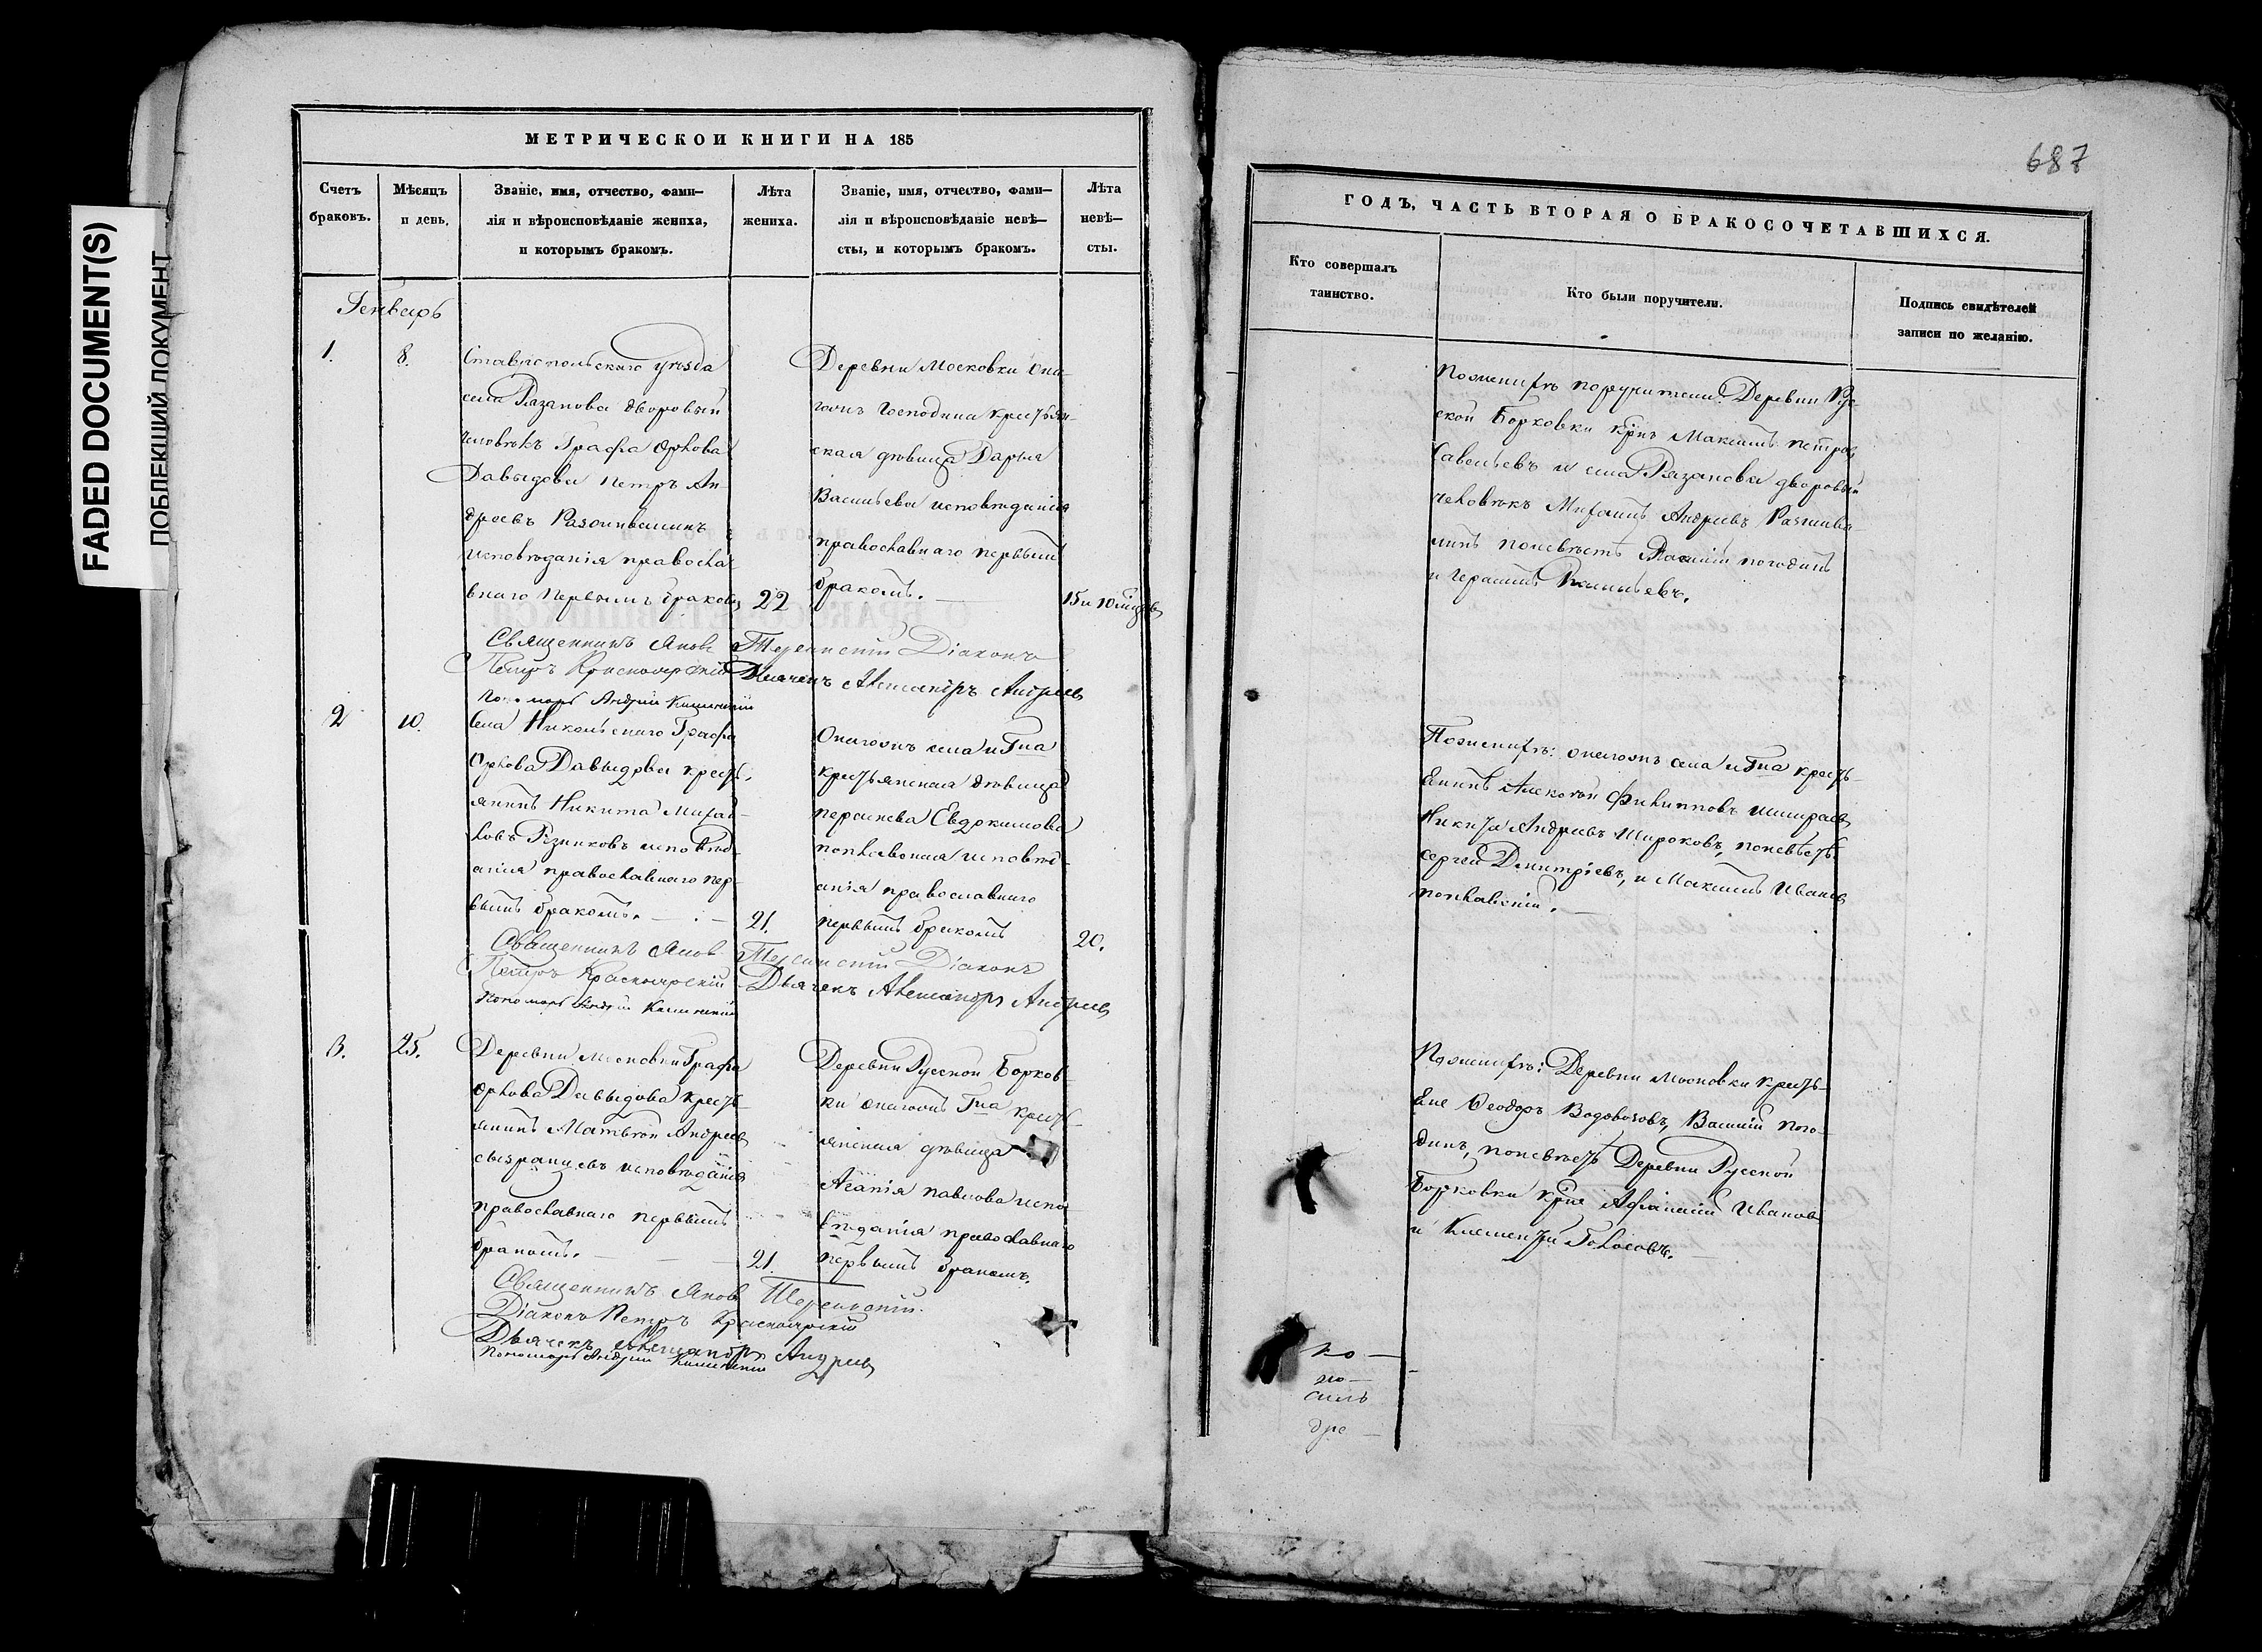 FADED DOCUMENT(S)
ПОБЛЕКШИЙ ДОКУМЕНТ
МЕТРИЧЕСКОИ КНИГИ НА 185
Счетъ браковъ.
Мѣсяцъ и день.
Званіе, имя, отчество, фами—
лія и вѣроисповѣданіе жениха,
и которымъ бракомъ.
Лѣта
жениха.
Званіе, имя, отчество, фами—
лія и вѣроисповѣданіе невѣ—
сты, и которымъ бракомъ.
Лѣта
невѣ—
сты.
Генварь
1.
8.
Ставропольскаго уѣзда
села Рязанова дворовый
человѣкъ Графа Орлова
Давыдова Петръ Ан-
дреевъ
исповѣданія правосла
внаго первымъ бракомъ
22
Деревни Московки Она-
гожъ Господина крестьян-
ская дѣвица Дарья
Васильева исповѣданія
православнаго первымъ
бракомъ.
15 и 10 мцевъ
Священникъ Яковъ Діаконъ
Петръ Красноярскій Дьячекъ Александръ Андреевъ
Пономарь Андрей
2
10.
Села Никольскаго Графа
Орлова Давыдова кресть-
янинъ Никита Михай-
ловъ Рѣзниковъ исповѣд-
анія православнаго пер-
вымъ бракомъ.
21.
Онагожъ села и Гна
крестьянская дѣвица
Евдокимова
исповѣд-
анія православнаго
первымъ бракомъ
20.
Священникъ Яковъ Діаконъ
Петръ Красноярскій Дьячекъ Александръ Андреевъ
Пономарь Андрей
3.
25.
Деревни Московки Графа
Орлова Давыдова кресть-
янинъ Матвѣй Андреевъ
Сызранцевъ исповѣданія
православнаго первымъ
бракомъ.
21.
Деревни Русской Борков-
ки онагожъ Гна кресть-
янская дѣвица
Агапія Павлова испо-
вѣданія православнаго
первымъ бракомъ.
Священникъ Яковъ
Діаконъ Петръ Красноярскій
Дьячекъ Александръ Андреевъ
Пономарь Андрей
687
ГОДЪ, ЧАСТЬ ВТОРАЯ О БРАКОСОЧЕТАВШИХСЯ.
Кто совершалъ
таинство.
Кто были поручители.
Подпись свидѣтелей
записи по желанію.
По женихѣ поручители: Деревни Рус-
ской Борковки Крнъ Максимъ Петровъ
Савельевъ и села Рязанова дворовый
человѣкъ Михаилъ Андреевъ
по невѣстѣ Василій Погодинъ
и Герасимъ Васильевъ.
По женихѣ: онагожъ села и Гна кресть-
янинъ Алексѣй Филипповъ
Никита Андреевъ Широковъ, по невѣстѣ
Сергей Димитріевъ, и Максимъ Ивановъ
По женихѣ: Деревни Московки кресть-
яне Ѳеодоръ Водовозовъ, Василій Пого-
динъ, по невѣстѣ Деревни Русской
Борковки Крне Афанасій Ивановъ
и Клементій Голосовъ.
по —
мо —
силъ
дре —